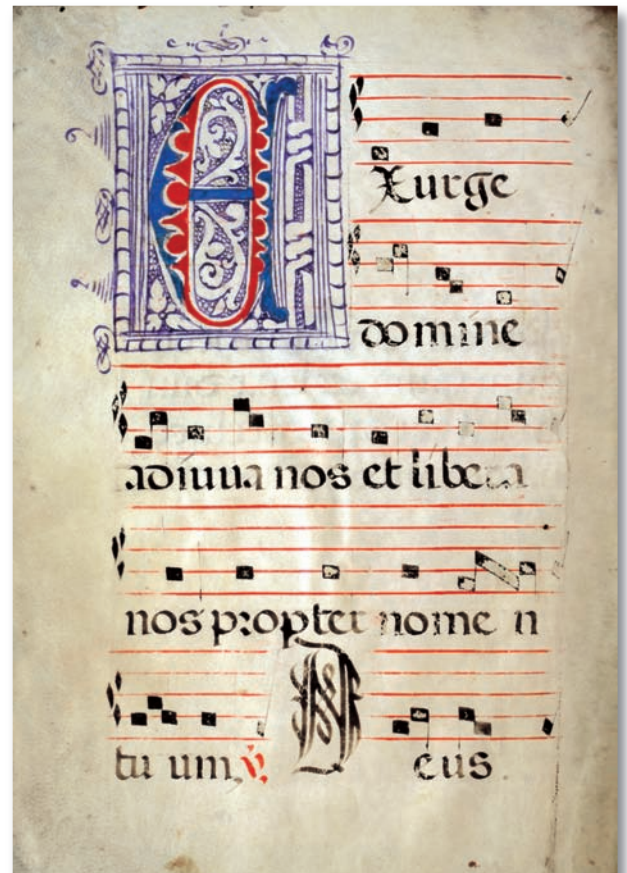 Exurge
domine
adiuua nos et libera
nos propter nomen
tuum, ℣. Deus